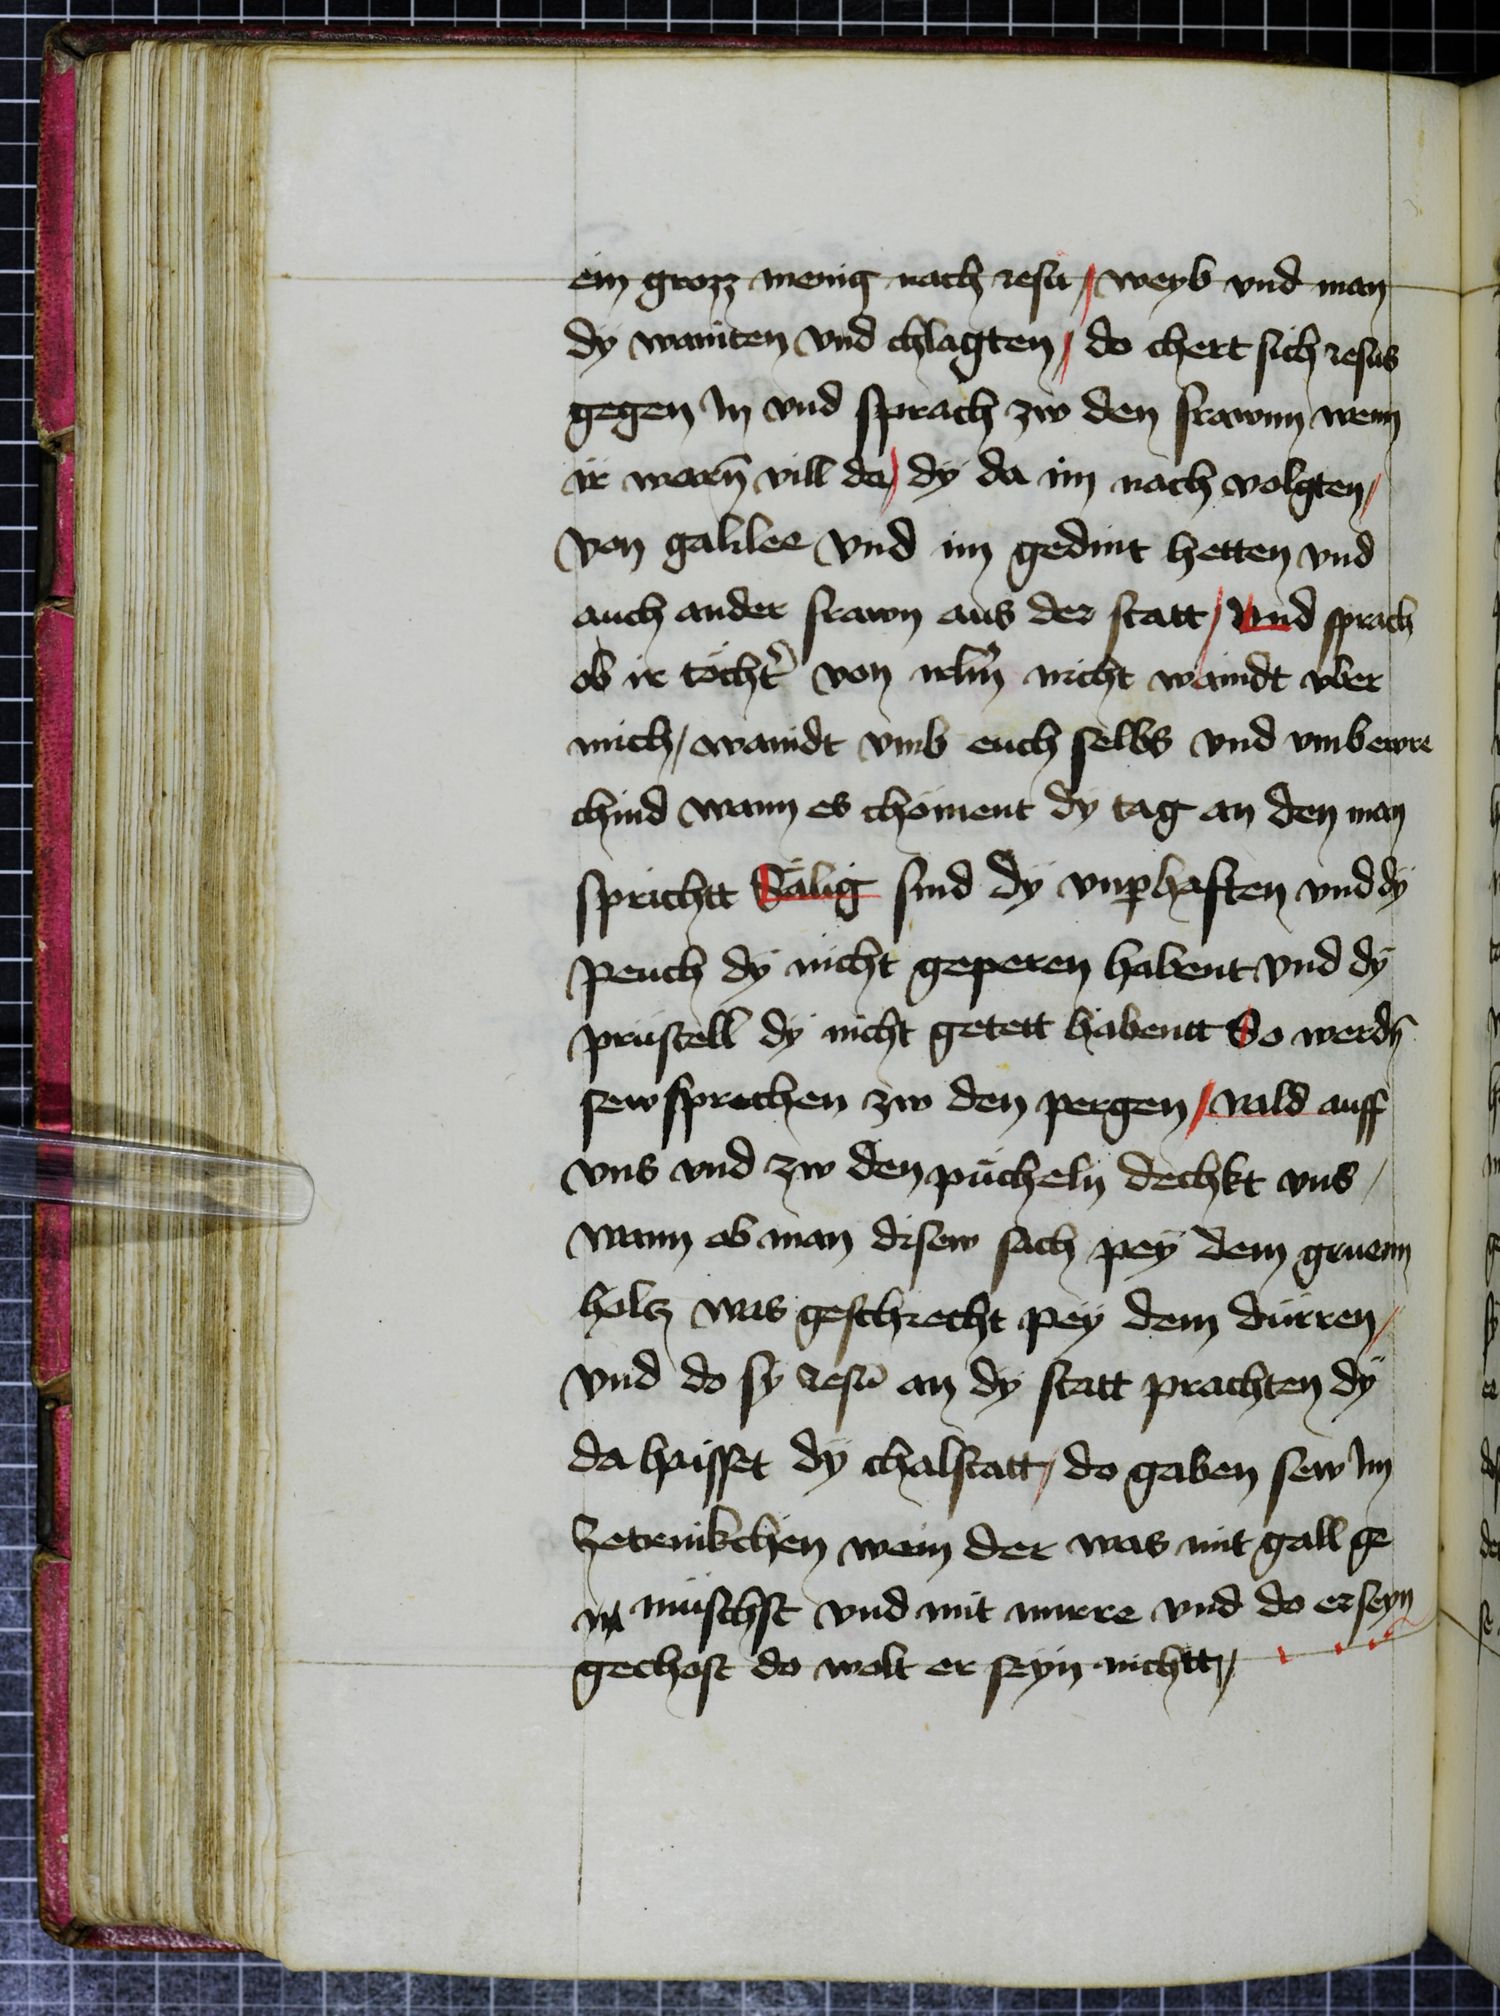 ein grozz menig nach iesu / weyb vnd man
dy wainten vnd chlagten / do chert sich iesus
gegen In vnd sprach zw den frawnn wenn
ir warn̄ vill da / dy da im nach volgten /
von galilee vnd im gedint hetten vnd
auch ander frawn aus der statt / vnd sprach
ob ir töcht̾ von irlm̄ nicht waindt vber
mich / waindt vmb euch selbs vnd vmb ewre
chind wann es chöment dy tag an den man
sprichtt Sälig sind dÿ vnꝑhaften vnd dy
peuch dÿ nicht geperen habent vnd dÿ
prüstell dÿ nicht getett habentt So werdn̄
sew sprechen zw den pergen / vald auff
vns vnd zw den pücheln dechkt vns /
wann ob man disew sach peÿ dem gruenn
holcz was geschiecht peÿ dem dürren /
vnd do sy iesū an dy statt prachten dÿ
da haisset dÿ chalstatt / do gaben sew Im
zetrinkchen wein der was mit gall ge
müschst vnd mit mirre vnd do er seyn
gechost do wolt er seyn nichtt /